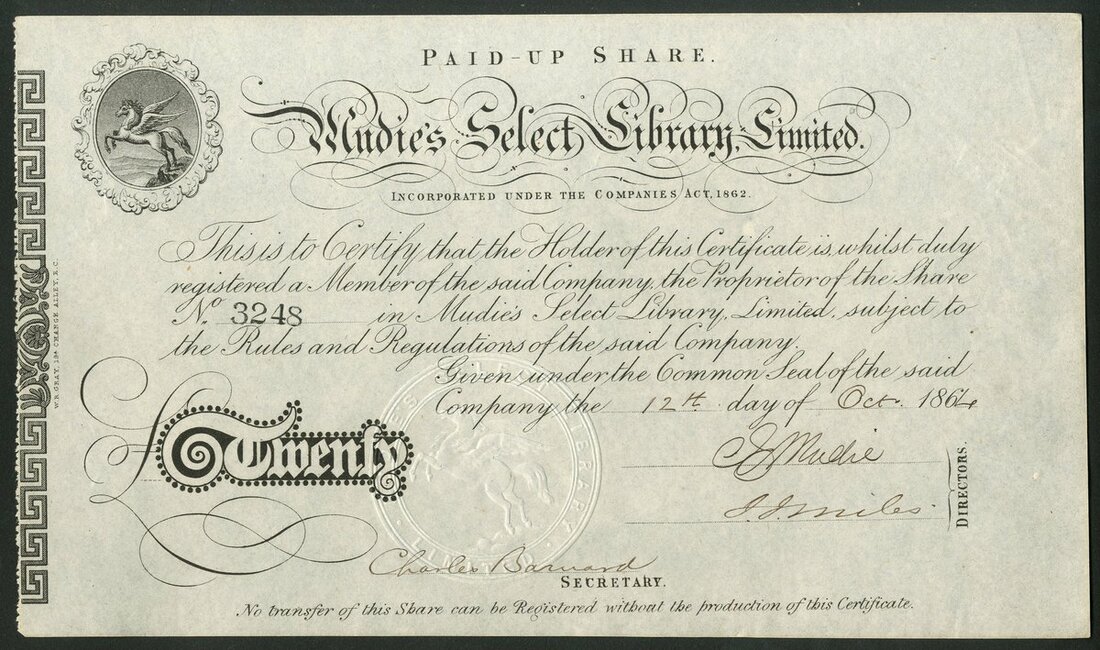 PAID-UP SHARE.
Mudie's Select Library, Limited.
INCORPORATED UNDER THE COMPANIES ACT, 1862.
This is to Certify that the Holder of this Certificate is, whilst duly
registered a Member of the said Company, the Proprietor of the Share
No. 3248 in Mudie's Select Library, Limited, subject to
the Rules and Regulations of the said Company.
Given under the Common Seal of the said
Company the 12th day of Oct. 1864
£ Twenty
C E Mudie
J. J. Miles
DIRECTORS.
Charles Barnard
SECRETARY.
No transfer of this Share can be Registered without the production of this Certificate.
LIBRARY
LIMITED